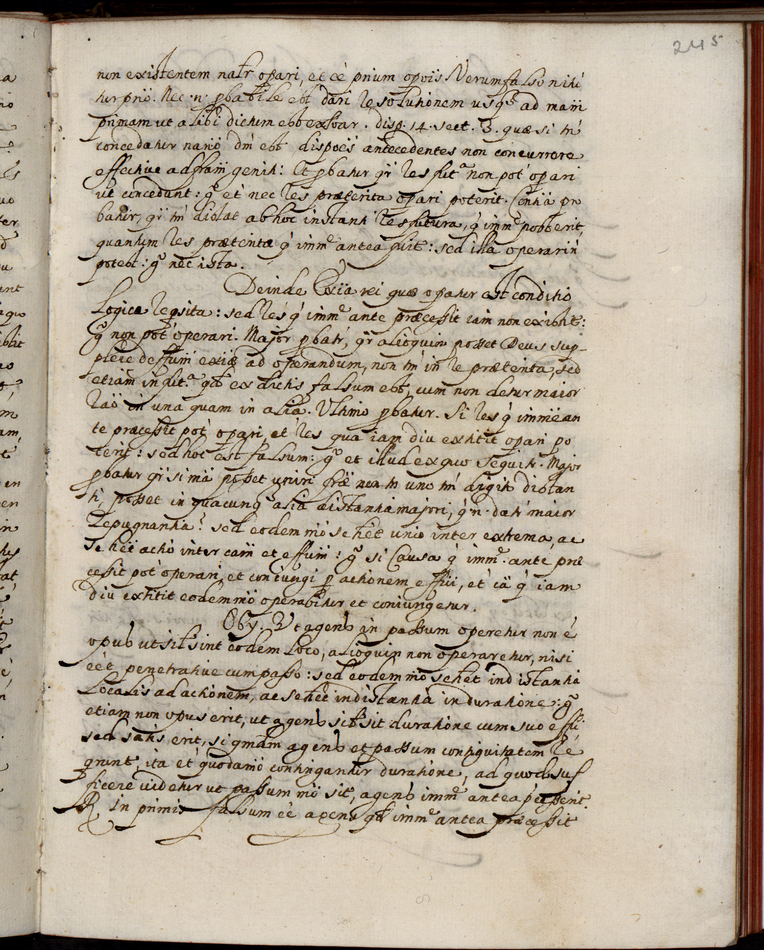 245
non existentem natr̃ opari, et eẽ pnium opoïs. Verum falso niti
tur pñõ. Nec .n. pbabile est dari resolutionem usq̃ ad mam
primam ut alibi dictum est exfoar. disp. 14. sect. 3. quæ si tñ
concedatur dm est disposes antecedentes non concurrere
effective ad fram geniti: Et pbatur qr res fut.ᵃ non pot' opari
ut concedunt: gͦ et nec res præterita opari poterit. Conña pro
batur, qr tñ distat ab hoc instanti res futura, q̃ immᵉ post erit,
quantum res præterita q̃ immᵉ antea fuit: sed illa operari ñ
potest: gͦ nec ista.
Deinde Exïa rei quæ opatur est conditio
Logica reqsita: sed res q̃ immᵉ ante præcessit iam non existit:
gͦ non pot' operari. Major pbatr, qr alioquim posset Deus sup-
plere deffum exiæ ad operandum, non tñ in re præterita, sed
etiam in fut.ᵃ qd ex dictis falsum est, cum non detur maior
rao in una quam in alia. Ultimo pbatur. Si res q̃ imme an
te præcessit pot' opari, et res qua iam diu extitit opari po
terit: sed hoc est falsum: gͦ et illud ex quo sequitr. Major
pbatur qr si ma posset uniri fræ non in uno tñ digiti distan
ti posset in quacunq̃ alia distantia majori, q̃ .n. datr maior
repugnantia? sed eodem mo se het unio inter extrema, ac
se het actio inter cam et effum: gͦ si Causa q̃ immᵉ ante præ
cessit pot' operari, et coniungi p actionem effui, et ca q̃ iam
diu extitit eodem mo operabitur et coniungetur.
Obÿ. Ut agens in passum operetur non e
opus ut sit sint eodem loco, alioquin non operaretur, nisi
eet penetrative cum passo: sed eodem mo se het indistantia
Localis ad actionem, ac se het indistantia in duratione: gͦ
etiam non opus erit, ut agens sit sit duratione cum suo effu
sed satis erit, si qmam agens et passum contiguitatem re
qrunt, ita et quodamo contingantur duratione, ad quod suf
ficere videtur ut passum mo sit, agens immᵉ antea præsserit.
R̷ In primis falsum eẽ agens qd immᵉ antea præcessit